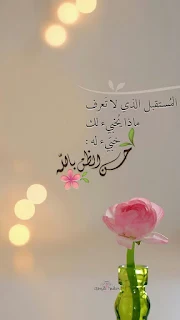 المستقبل الذي لا تعرف
ماذا يُخبّيء لك
خبّيء له :
حسن الظن بالله